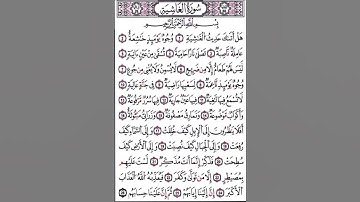 سُورَةُ الْغَاشِيَةِ
بِسْمِ اللَّهِ الرَّحْمَٰنِ الرَّحِيمِ
هَلْ أَتَاكَ حَدِيثُ الْغَاشِيَةِ ١ وُجُوهٌ يَوْمَئِذٍ خَاشِعَةٌ ٢
عَامِلَةٌ نَاصِبَةٌ ٣ تَصْلَىٰ نَارًا حَامِيَةً ٤ تُسْقَىٰ مِنْ عَيْنٍ آنِيَةٍ ٥
لَيْسَ لَهُمْ طَعَامٌ إِلَّا مِنْ ضَرِيعٍ ٦ لَا يُسْمِنُ وَلَا يُغْنِي مِنْ جُوعٍ ٧
وُجُوهٌ يَوْمَئِذٍ نَاعِمَةٌ ٨ لِسَعْيِهَا رَاضِيَةٌ ٩ فِي جَنَّةٍ عَالِيَةٍ ١٠
لَا تَسْمَعُ فِيهَا لَاغِيَةً ١١ فِيهَا عَيْنٌ جَارِيَةٌ ١٢ فِيهَا سُرُرٌ مَرْفُوعَةٌ ١٣
وَأَكْوَابٌ مَوْضُوعَةٌ ١٤ وَنَمَارِقُ مَصْفُوفَةٌ ١٥ وَزَرَابِيُّ مَبْثُوثَةٌ ١٦
أَفَلَا يَنْظُرُونَ إِلَى الْإِبِلِ كَيْفَ خُلِقَتْ ١٧ وَإِلَى السَّمَاءِ كَيْفَ
رُفِعَتْ ١٨ وَإِلَى الْجِبَالِ كَيْفَ نُصِبَتْ ١٩ وَإِلَى الْأَرْضِ كَيْفَ
سُطِحَتْ ٢٠ فَذَكِّرْ إِنَّمَا أَنْتَ مُذَكِّرٌ ٢١ لَسْتَ عَلَيْهِمْ
بِمُصَيْطِرٍ ٢٢ إِلَّا مَنْ تَوَلَّىٰ وَكَفَرَ ٢٣ فَيُعَذِّبُهُ اللَّهُ الْعَذَابَ
الْأَكْبَرَ ٢٤ إِنَّ إِلَيْنَا إِيَابَهُمْ ٢٥ ثُمَّ إِنَّ عَلَيْنَا حِسَابَهُمْ ٢٦